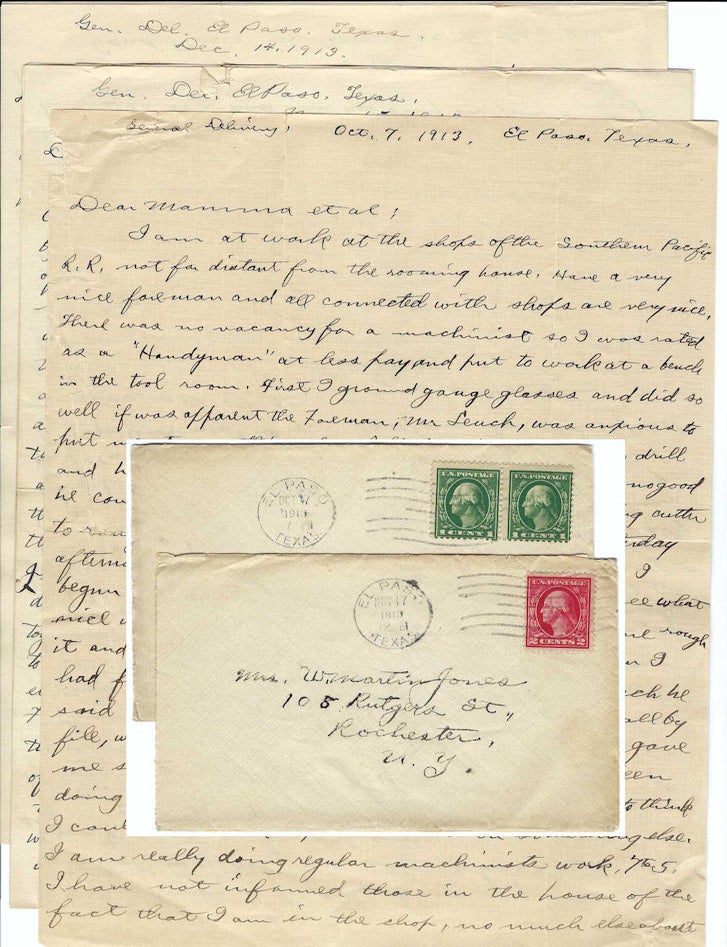 Gen. Del. El Paso. Texas.
Dec. 14. 1913.
Gen. Del. El Paso. Texas.
General Delivery, Oct. 7, 1913, El Paso. Texas.
Dear Mamma et al;
I am at work at the shops of the Southern Pacific
R.R. not far distant from the rooming house. Have a very
nice foreman and all connected with shops are very nice.
There was no vacancy for a machinist so I was rated
as a "Handyman" at less pay and put to work at a bench
in the tool room. First I ground gauge glasses and did so
well it was apparent the Foreman, Mr was anxious to
put
drill
and
no good
he
cutter
to
begun
I
nice
see what
it and
rough
had
I
said
file,
all by
me
gave
doing
to think
I
else.
I am really doing regular machinists work, 7 to 5.
I have not informed those in the house of the
fact that I am in the shop, no much else about
EL PASO
OCT
1913
TEXAS
U.S. POSTAGE
1 CENT 1
U.S. POSTAGE
1 CENT 1
EL PASO
NOV 17
1913
TEXAS
U.S. POSTAGE
2 CENTS 2
Mrs. W. Martin Jones
105 Rutgers St.,
Rochester,
N. Y.